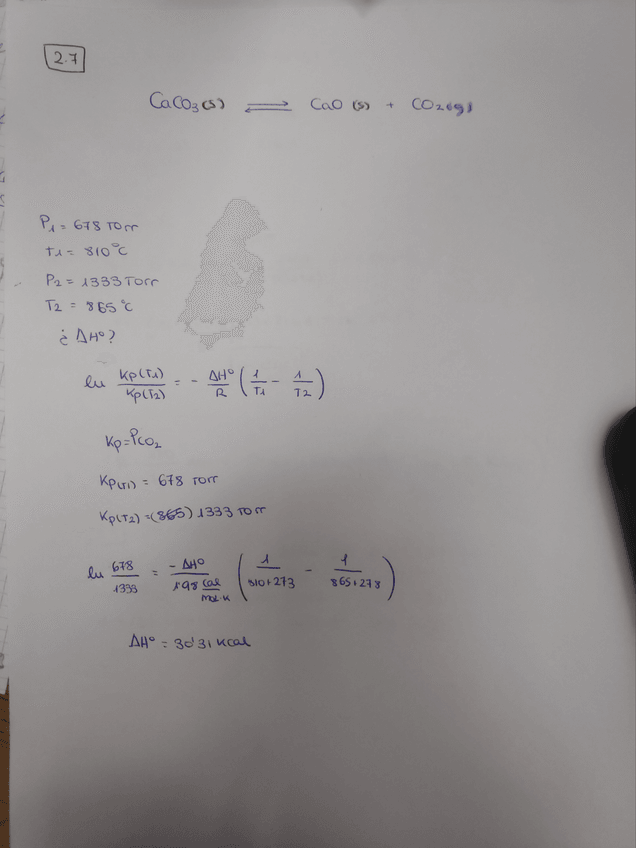 2.7
CaCO3(s) ⇌ CaO (s) + CO2(g)
P1 = 678 Torr
T1 = 810 °C
P2 = 1333 Torr
T2 = 865 °C
¿ ΔHº?
ln Kp(T1)/Kp(T2) = - ΔHº/R (1/T1 - 1/T2)
Kp = PCO2
Kp(T1) = 678 Torr
Kp(T2) = (865) 1333 Torr
ln 678/1333 = -ΔHº/1'98 cal/mol·K (1/810+273 - 1/865+273)
ΔHº = 30'31 kcal